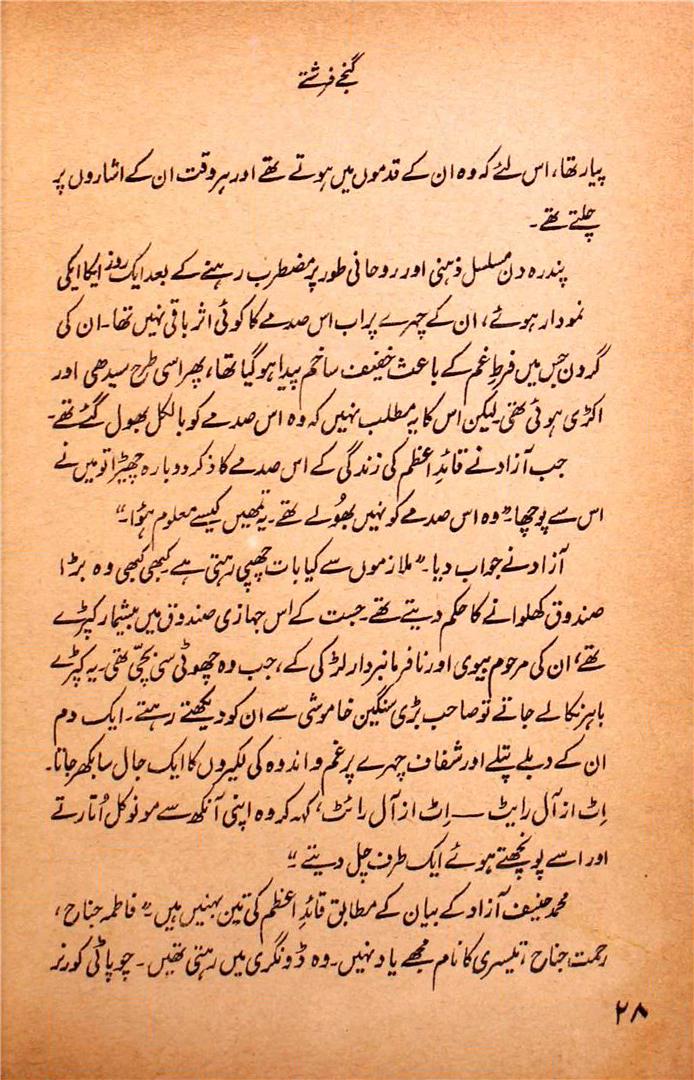 گنجے فرشتے
پیار تھا، اس لئے کہ وہ ان کے قدموں میں ہوتے تھے اور ہر وقت ان کے اشاروں پر
چلتے تھے۔
پندرہ دن مسلسل ذہنی اور روحانی طور پر مضطرب رہنے کے بعد ایک روز ایکا ایکی
نمودار ہوئے، ان کے چہرے پر اب اس صدمے کا کوئی اثر باقی نہیں تھا۔ ان کی
گردن جس میں فرطِ غم کے باعث خفیف سا خم پیدا ہو گیا تھا، پھر اسی طرح سیدھی اور
اکڑی ہوئی تھی لیکن اس کا یہ مطلب نہیں کہ وہ اس صدمے کو بالکل بھول گئے تھے۔
جب آزاد نے قائدِ اعظم کی زندگی کے اس صدمے کا ذکر دوبارہ چھیڑا تو میں نے
اس سے پوچھا۔ ”وہ اس صدمے کو نہیں بھُولے تھے۔ یہ تمھیں کیسے معلوم ہؤا۔“
آزاد نے جواب دیا۔ ”ملازموں سے کیا بات چھپی رہتی ہے کبھی کبھی وہ بڑا
صندوق کھلوانے کا حکم دیتے تھے۔ جست کے اس جہازی صندوق میں بیشمار کپڑے
تھے، ان کی مرحوم بیوی اور نافرمانبردار لڑکی کے، جب وہ چھوٹی سی بچّی تھی۔ یہ کپڑے
باہر نکالے جاتے تو صاحب بڑی سنگین خاموشی سے ان کو دیکھتے رہتے۔ ایک دم
ان کے دبلے پتلے اور شفاف چہرے پر غم و اندوہ کی لکیروں کا ایک جال سا بکھر جاتا۔
اِٹ از آل رایٹ — اِٹ از آل رائٹ، کہہ کر وہ اپنی آنکھ سے مونوکل اُتارتے
اور اسے پونچھتے ہوئے ایک طرف چل دیتے۔“
محمد حنیف آزاد کے بیان کے مطابق قائدِ اعظم کی تین بہنیں ہیں۔ ”فاطمہ جناح،
رحمت جناح، تیسری کا نام مجھے یاد نہیں۔ وہ ڈونگری میں رہتی تھیں۔ چوپاٹی کورنر
۲۸